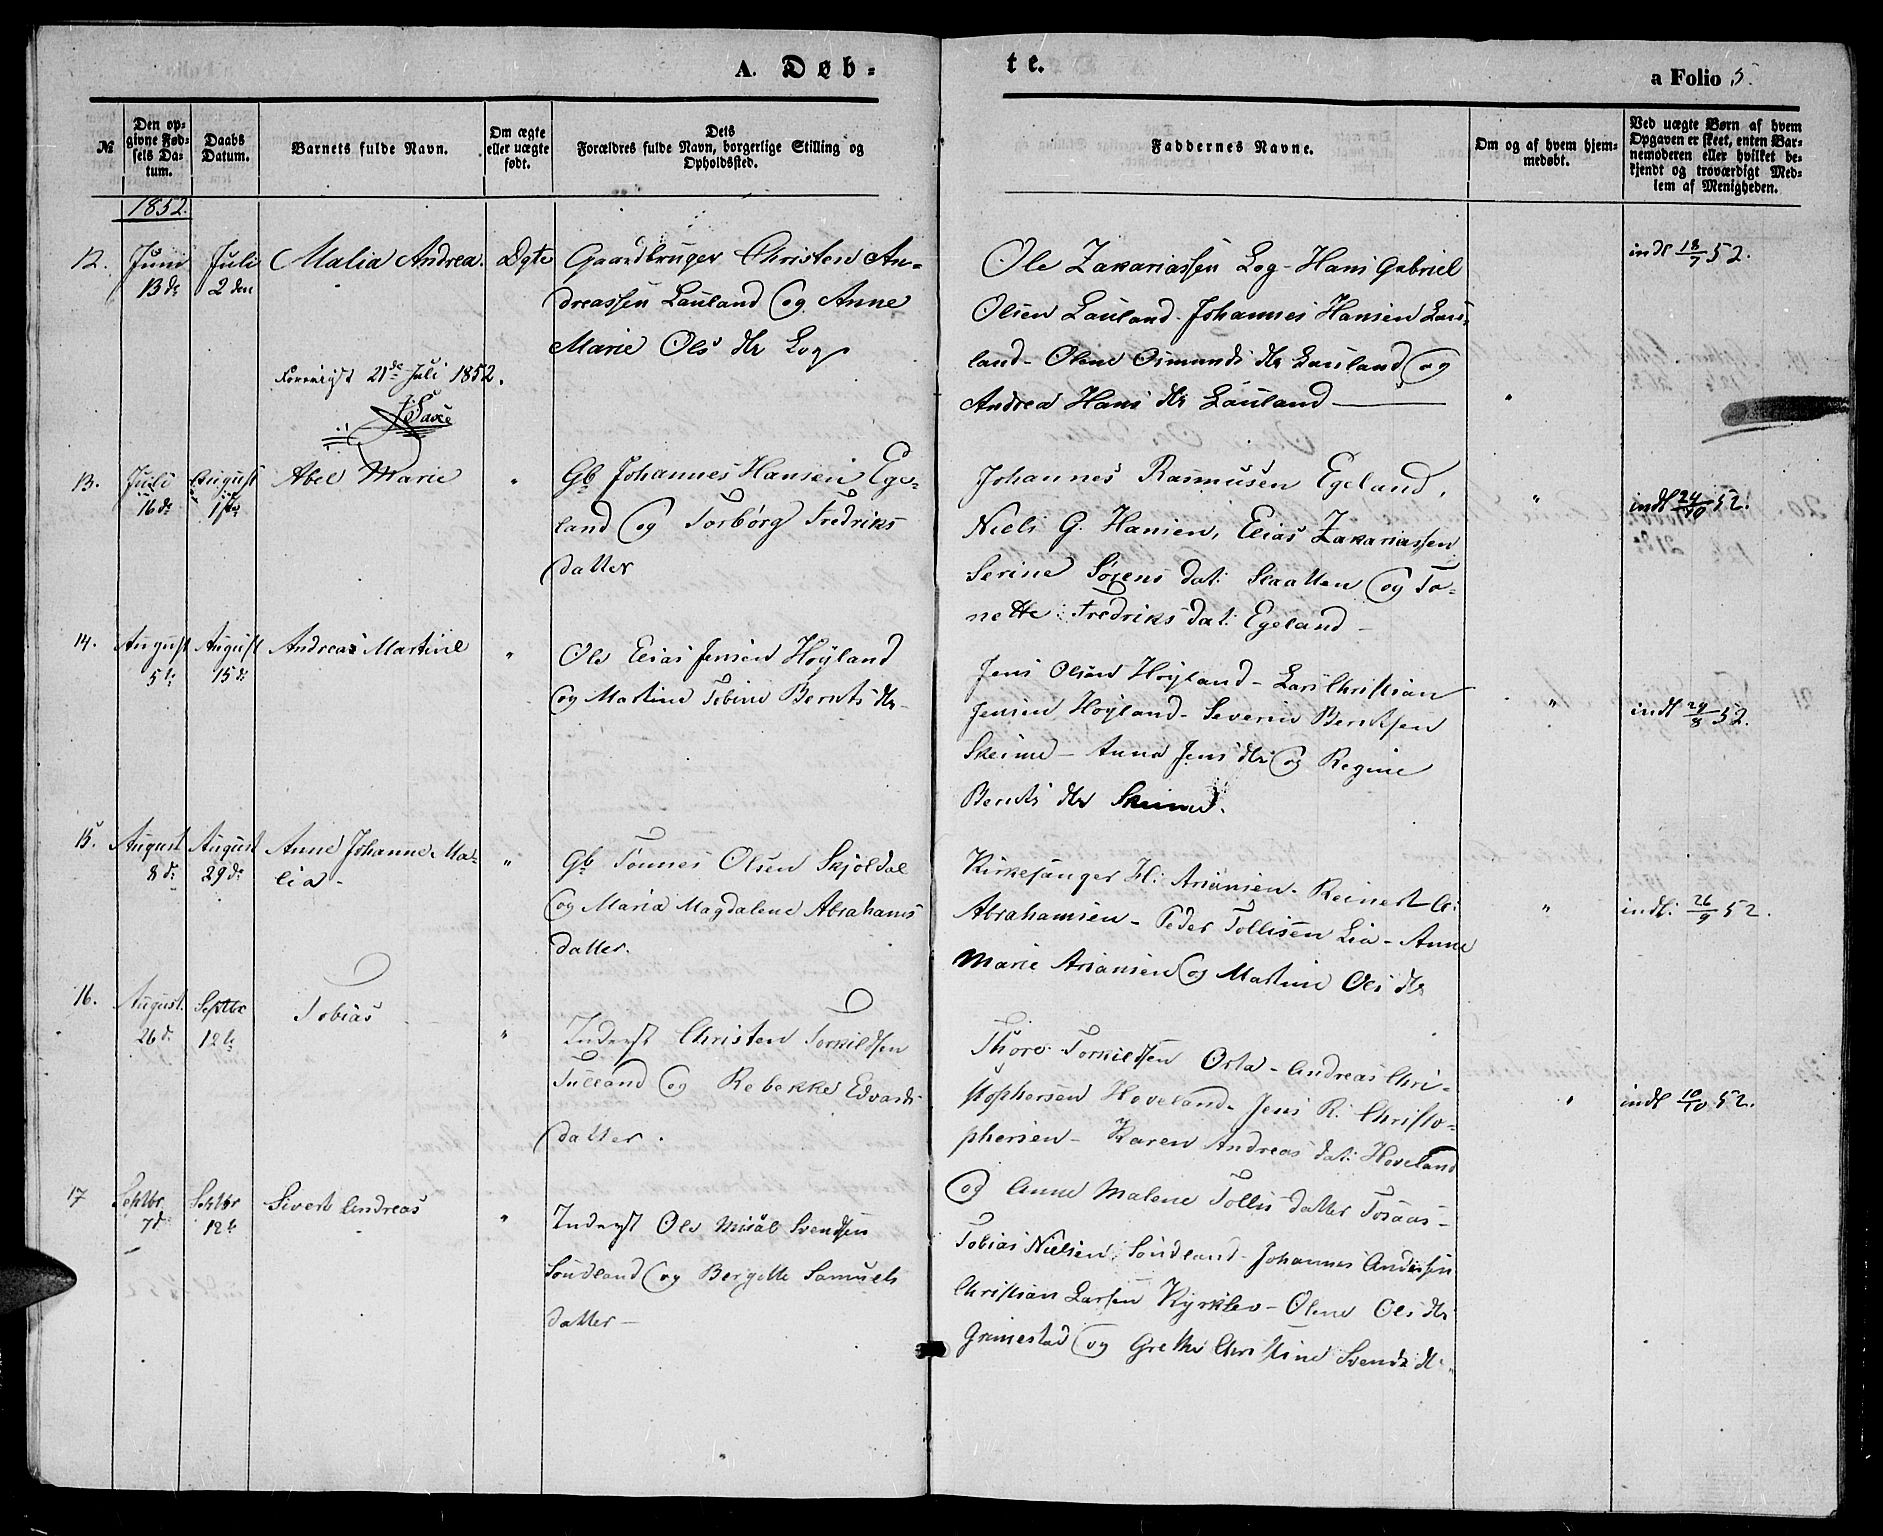 A. Døb-
te.
a Folio 5.
№
Den op-
givne Fød-
sels Da-
tum.
Daabs
Datum.
Barnets fulde Navn.
Om ægte
eller uægte
født.
Dets
Forældres fulde Navn, borgerlige Stilling og
Opholdssted.
Faddernes Navne.
Om og af hvem hjem-
medøbt.
Ved uægte Børn af hvem
Opgaven er skeet, enten Bar-
nemoderen eller hvilket be-
kjendt og troværdigt Med-
lem af Menigheden.
1852.
12. Juni
13de
Juli
2den
Malia Andrea.
Ægte
Gaardbruger Christen An-
dreassen Lauland og Anne
Marie Ols dtr Log
Ole Zakariassen Log - Hans Gabriel
Olsen Lauland - Johannes Hansen Lau-
land - Olene Osmunds dtr Lauland og
Andrea Hans dtr Lauland
"
indf 18/7 52.
21de Juli 1852.
13. Juli
16de
August
1ste
Abel Marie
"
Gb Johannes Hansen Ege-
land og Torborg Fredriks
datter
Johannes Rasmusen Egeland,
Niels G. Hansen, Elias Zakariassen
Serine Sørens dat: Slaatten og To-
nette Fredriks dat: Egeland -
"
indf 24/10 52.
14. August
5te
August
15de
Andreas Martine
"
Ole Elias Jensen Høyland
og Martine Tobine Bernts dtr
Jens Olsen Høyland - Lars Christian
Jensen Høyland - Severin Berntsen
Skeime - Anna Jens dtr og Regine
Bernts dtr Skeime.
"
indf 29/8 52.
15. August
8de
August
29de
Anne Johanne Ma-
lia -
"
Gb Tønnes Olsen Skjoldal
og Maria Magdalene Abrahams
datter.
Kirkesanger H: Arianson - Reinert A:
Abrahamsen - Peder Tollisen Lia - Anne
Marie Ariansen og Martine Ols dtr
"
indf: 26/9 52.
16. August
26de
Septbr
12te
Tobias
"
Inderst Christen Torkildsen
Tulland og Rebekke Edvards
datter.
Thore Torkildsen Osta - Andreas Chri-
stophersen Hoveland - Jens R. Christo-
phersen - Karen Andreas dat: Hoveland
og Anne Malene Tollis datter Tosaas -
"
indf 10/10 52.
17 Septbr
7de
Septbr
12te
Sivert Andreas
"
Inderst Ole Misal Svendsen
Soudland og Bergette Samuels
datter -
Tobias Nielsen Soudland - Johannes Andersen
Christian Larsen Kyrkleo - Olene Ols dtr
Grimestad og Grethe Christine Svends dtr